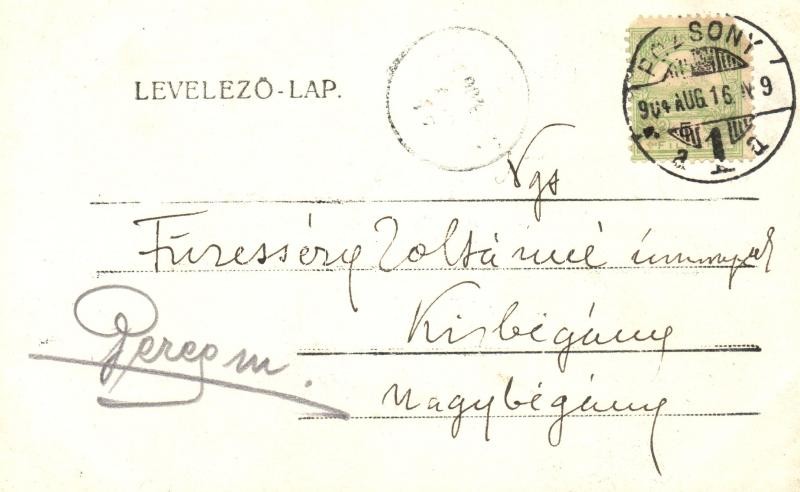 LEVELEZŐ-LAP.
POZSONY
904 AUG. 16. N 9
1
Ngs
Füzesséry Zoltánné
Kisbégány
Beregm.
Nagybégány